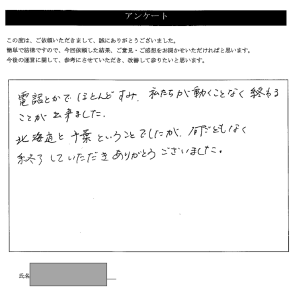 アンケート
この度は、ご依頼いただきまして、誠にありがとうございました。
簡単で結構ですので、今回依頼した結果、ご意見・ご感想をお聞かせいただければと思います。
今後の運営に関して、参考にさせていただき、改善して参りたいと思います。
電話とかでほとんどすみ、私たちが動くことなく終わる
ことが出来ました。
北海道と千葉ということでしたが、何どもなく
終了していただきありがとうございました。
氏名